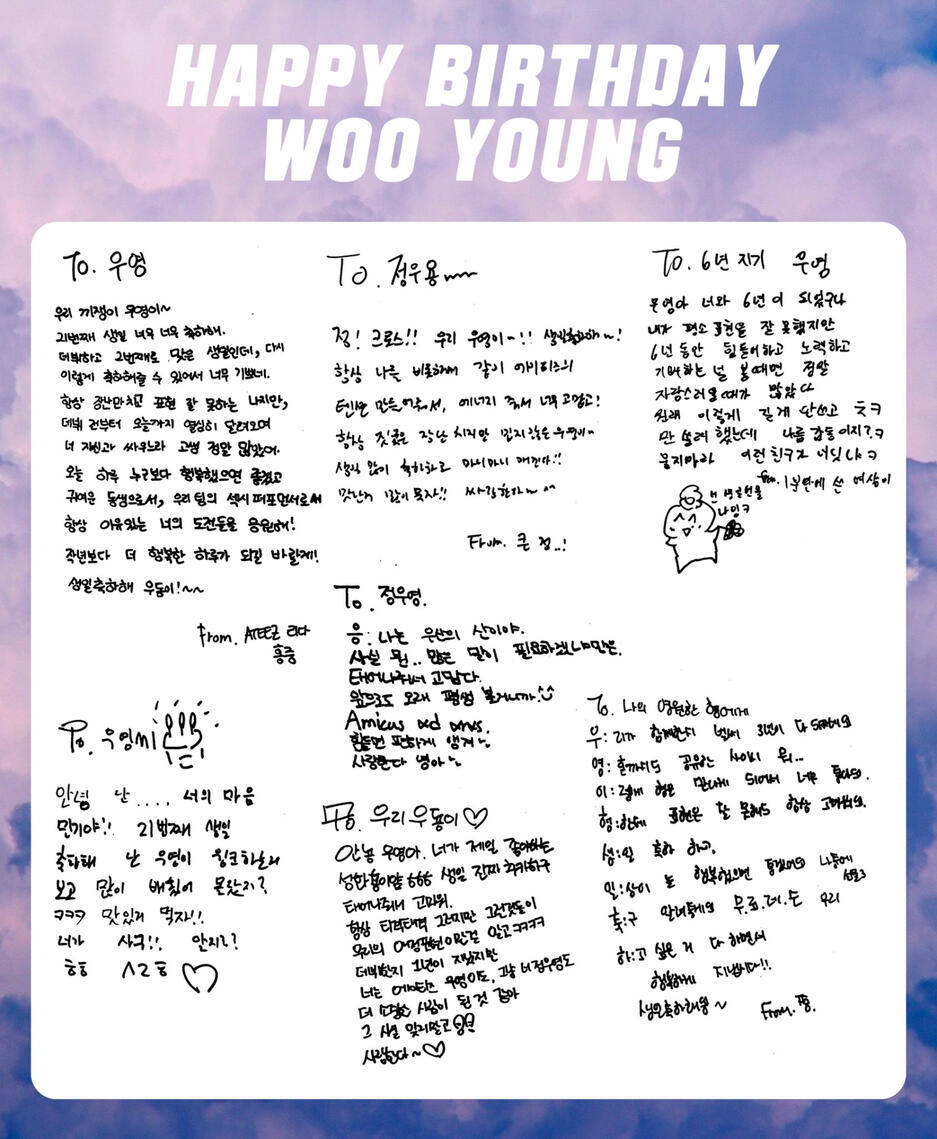 HAPPY BIRTHDAY
WOO YOUNG
To. 우영
우리 끼쟁이 우영이~
21번째 생일 너무 너무 축하해.
데뷔하고 2번째로 맞은 생일인데, 다시
이렇게 축하해줄 수 있어서 너무 기쁘네.
항상 장난만치고 표현 잘 못하는 나지만,
데뷔 전부터 오늘까지 열심히 달려오며
너 자신과 싸우느라 고생 정말 많았어.
오늘 하루 누구보다 행복했으면 좋겠고
귀여운 동생으로서, 우리 팀의 섹시 퍼포먼서로써
항상 이유있는 너의 도전들을 응원해!
작년보다 더 행복한 하루가 되길 바랄게!
생일축하해 우둥이!~~
From. ATEEZ 리다
홍중
To. 정우용~~
징! 크로스!! 우리 우영이~!! 생일축하해~!
항상 나를 비롯해 같이 에이티즈의
텐션 만들어줘서, 에너지 줘서 너무 고맙고!
항상 짓궂은 장난 치지만 밉지않은 우영이~
생일 많이 축하하고 마니마니 애낀다!!
맛난거 많이 묵자!! 싸랑한다~ ^^
From. 큰 징..!
To. 6년 지기 우영
우영아 너와 6년이 되었구나
내가 평소 표현을 잘 못했지만
6년 동안 힘들어하고 노력하고
기뻐하는 널 볼때면 정말
자랑스러울때가 많았다
원래 이렇게 길게 안쓰고 ㅋㅋ
만 쓸려 했는데 나름 감동이지?ㅋ
울지마라 이런친구가 어딨냐ㅋ
from. 1분만에 쓴 여상이
넌 생일선물
나임ㅋ
To. 정우영.
응: 나는 우산의 산이야.
사실 뭔.. 많은 말이 필요하겠냐만은.
태어나줘서 고맙다.
앞으로도 오래 평생 볼거니까
Amicus ad aras.
힘들면 편하게 앵겨
사랑한다 영아
To. 우영씨
안녕 난 .... 너의 마음
민기야!! 21번째 생일
축하해 난 우영이 윙크하는거
보고 많이 배웠어 몰랐지?
ㅋㅋㅋ 맛있게 먹자!!
너가 사구!! 알지??
ㅎㅎ ㅅㄹㅎ ♡
To. 우리 우둥이♡
안농 우영아. 너가 제일 좋아하는
성화형이얌 ㅎㅎㅎ 생일 진짜 추카하구
태어나줘서 고마워.
항상 티격태격 그러지만 그런것들이
우리의 애정표현이란걸 알고ㅋㅋㅋㅋ
데뷔한지 1년이 지났지만
너는 에이티즈 우영이도, 그냥 너 정우영도
더 소중한 사람이 된 것 같아
그 사실 잊지말고
사랑한다~♡
To. 나의 영원한 형에게
우:리가 함께한지 벌써 3년이 다 되네요
영:혼까지도 공유하는 사이지 뭐...
이:렇게 형은 만나게 되어서 너무 좋네요.
형:한테 표현은 잘 못해도 항상 고마워요.
생:일 축하 하고,
일:상이 늘 행복했으면 좋겠어요 나중에
축:구 알려줄게요 무.료.레.슨 우리
선물로
하:고 싶은 거 다 하면서
행복하게 지냅시다!!
생일축하해용~
From. 쫑.